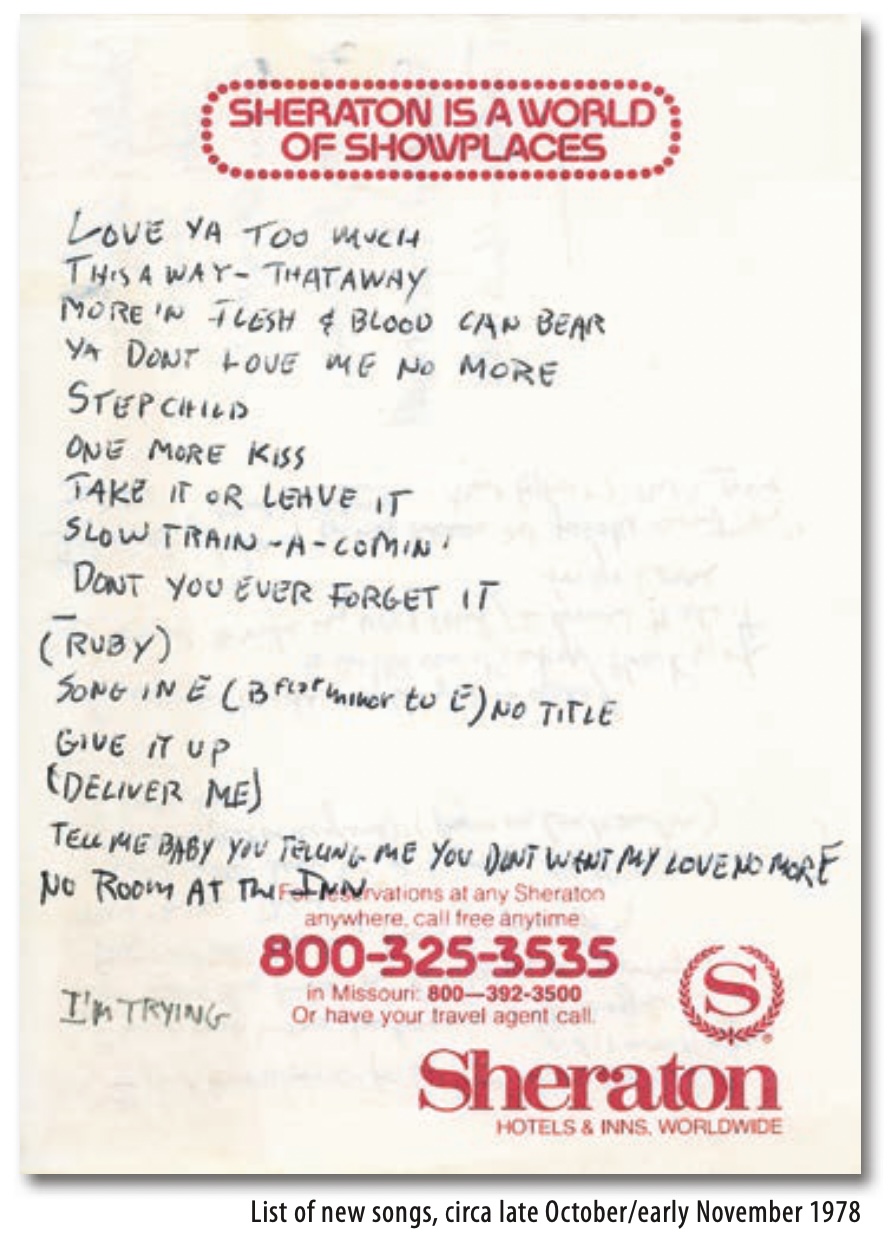 SHERATON IS A WORLD
OF SHOWPLACES
LOVE YA TOO MUCH
THIS A WAY - THATAWAY
MORE 'N FLESH & BLOOD CAN BEAR
YA DONT LOVE ME NO MORE
STEPCHILD
ONE MORE KISS
TAKE IT OR LEAVE IT
SLOW TRAIN-A-COMIN'
DONT YOU EVER FORGET IT
(RUBY)
SONG IN E (B flat minor to E) NO TITLE
GIVE IT UP
(DELIVER ME)
TELL ME BABY YOU TELLING ME YOU DONT WANT MY LOVE NO MORE
NO ROOM AT THE INN
For reservations at any Sheraton
anywhere, call free anytime
800-325-3535
in Missouri: 800—392-3500
Or have your travel agent call.
I'M TRYING
S
Sheraton
HOTELS & INNS, WORLDWIDE
List of new songs, circa late October/early November 1978